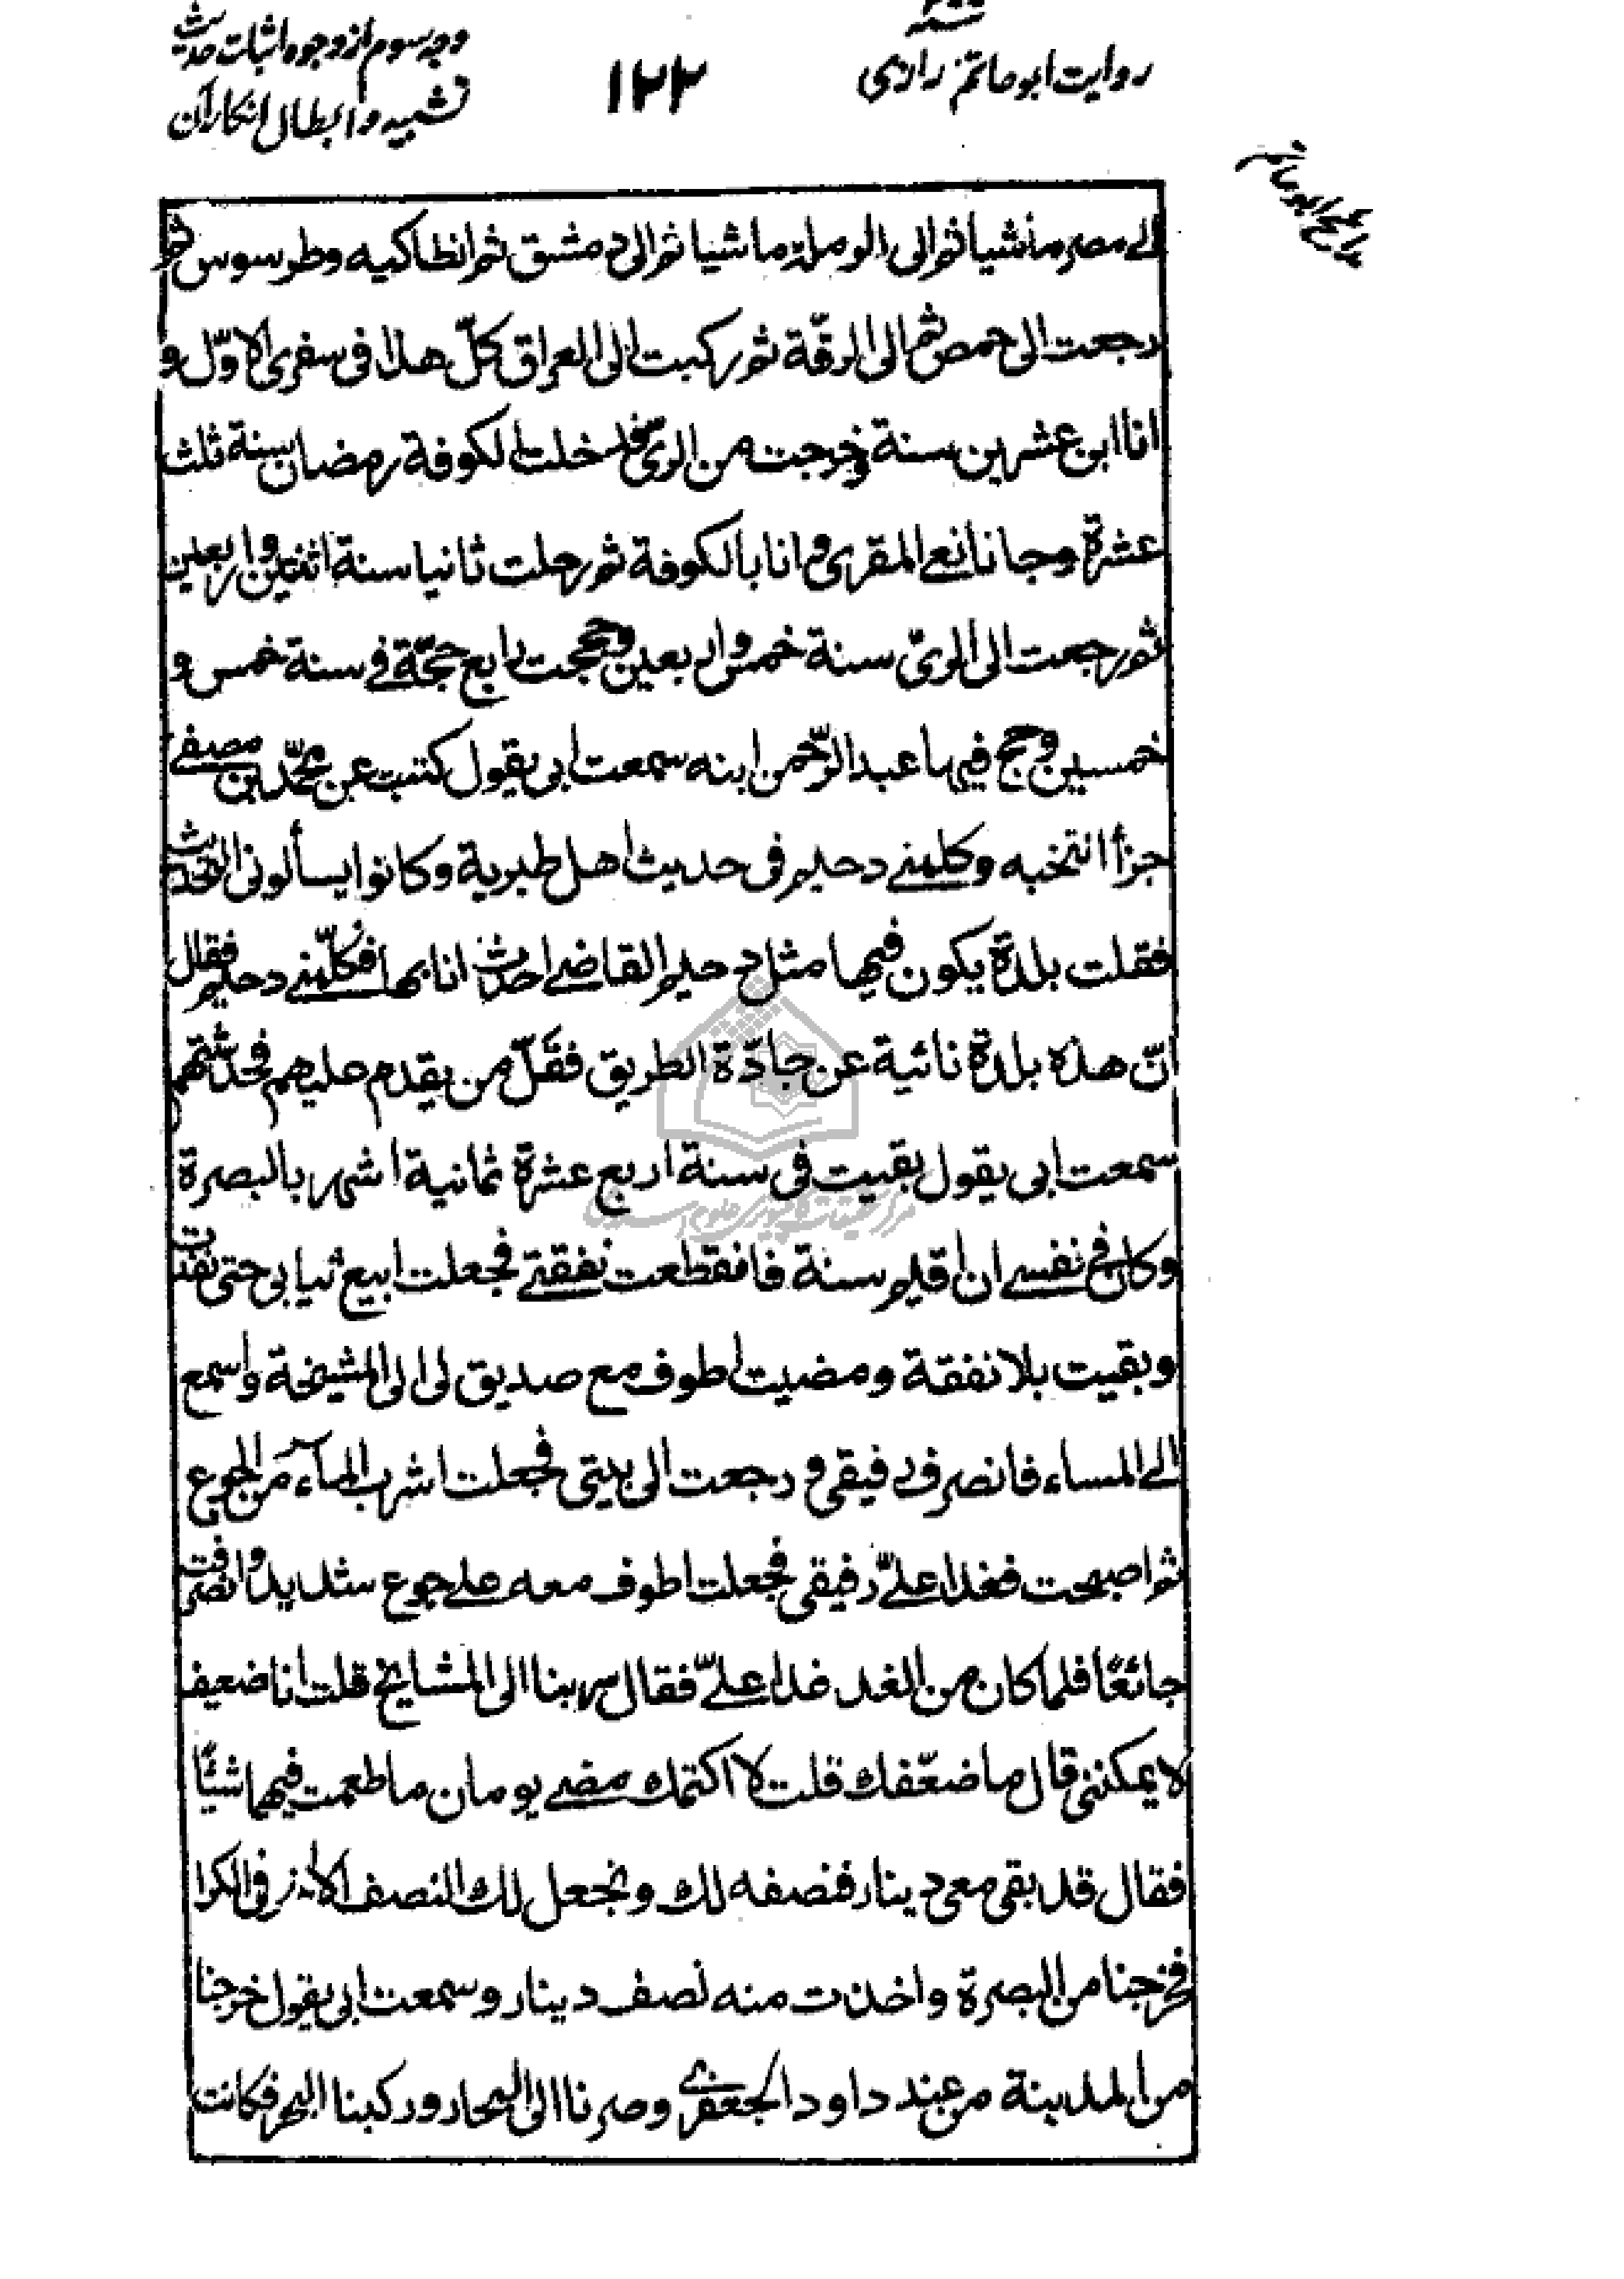 روایت ابو حاتم رازی
۱۲۲
وجه سوم از وجوه اثبات حدیث
تشبیه و ابطال انکار آن
مدائح ابو حاتم
الے مصر ماشیا ثم الی الرملة ماشیا ثم الی دمشق ثم انطاکیه وطرسوس ثم
رجعت الی حمص ثم الی الرقّة ثم رکبت الی العراق کلّ هذا فی سفری الاوّل و
انا ابن عشرین سنة وخرجت من الریّ فدخلت الکوفة رمضان سنة ثلث
عشرة وجانا نعی المقری وانا بالکوفة ثم رحلت ثانیا سنة اثنین واربعین
ثم رجعت الی الریّ سنة خمس واربعین وحججت رابع حجّة فے سنة خمس و
خمسین وحج فیها عبد الرّحمن ابنه سمعت ابی یقول کتبت عن محمّد بن مصفے
جزأ انتخبه وکلمنے دحیم فی حدیث اهل طبریة وکانوا یسألونی التحدیث
فقلت بلدة یکون فیها مثل دحیم القاضے احدث انا بها فکلّمنے دحیم فقال
انّ هذه بلدة نائیة عن جادّة الطریق فقَلّ من یقدم علیهم فحدّثتهم
سمعت ابی یقول بقیت فی سنة اربع عشرة ثمانیة اشهر بالبصرة
وکان فے نفسے ان اقیم سنة فانقطعت نفقتے فجعلت ابیع ثیابی حتی نفدت
وبقیت بلا نفقة ومضیت اطوف مع صدیق لی الی المشیخة واسمع
الے المساء فانصرف رفیقی ورجعت الی بیتی فجعلت اشرب المآء من الجوع
ثم اصبحت فغدا علیّ رفیقی فجعلت اطوف معه علے جوع شدید وانصرفت
جائعًا فلما کان من الغد غدا علیّ فقال سر بنا الی المشایخ قلت انا ضعیف
لا یمکننی قال ما ضعّفک قلت لا اکتمک مضے یومان ما طعمت فیهما شیئًا
فقال قد بقی معی دینار فنصفه لک ونجعل لک النصف الاخر فی الکرا
فخرجنا من البصرة واخذت منه نصف دینار وسمعت ابی یقول خرجنا
من المدینة من عند داود الجعفری وصرنا الی البحار ورکبنا البحر فکانت